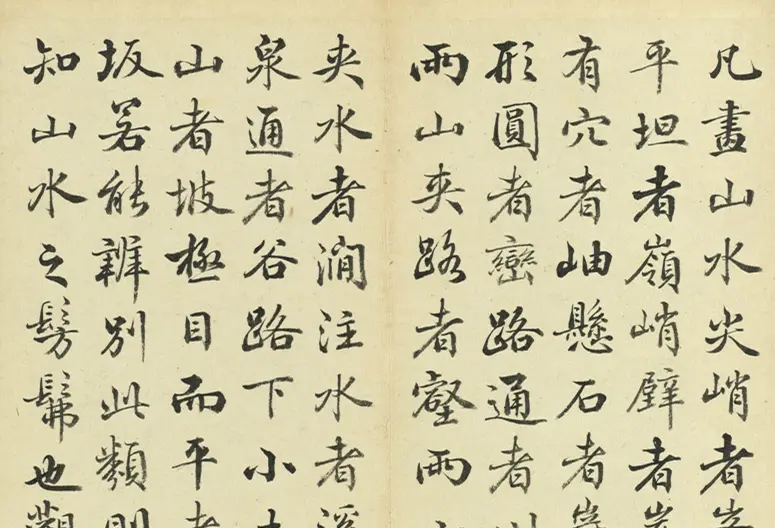 凡畫山水尖峭者
平坦者嶺峭壁者
有穴者岫懸石者
形圓者巒路通者川
兩山夾路者壑兩
夾水者澗注水者溪
泉通者谷路下小土
山者坡極目而平者
坂若能辨別此類則
知山水之髣髴也觀